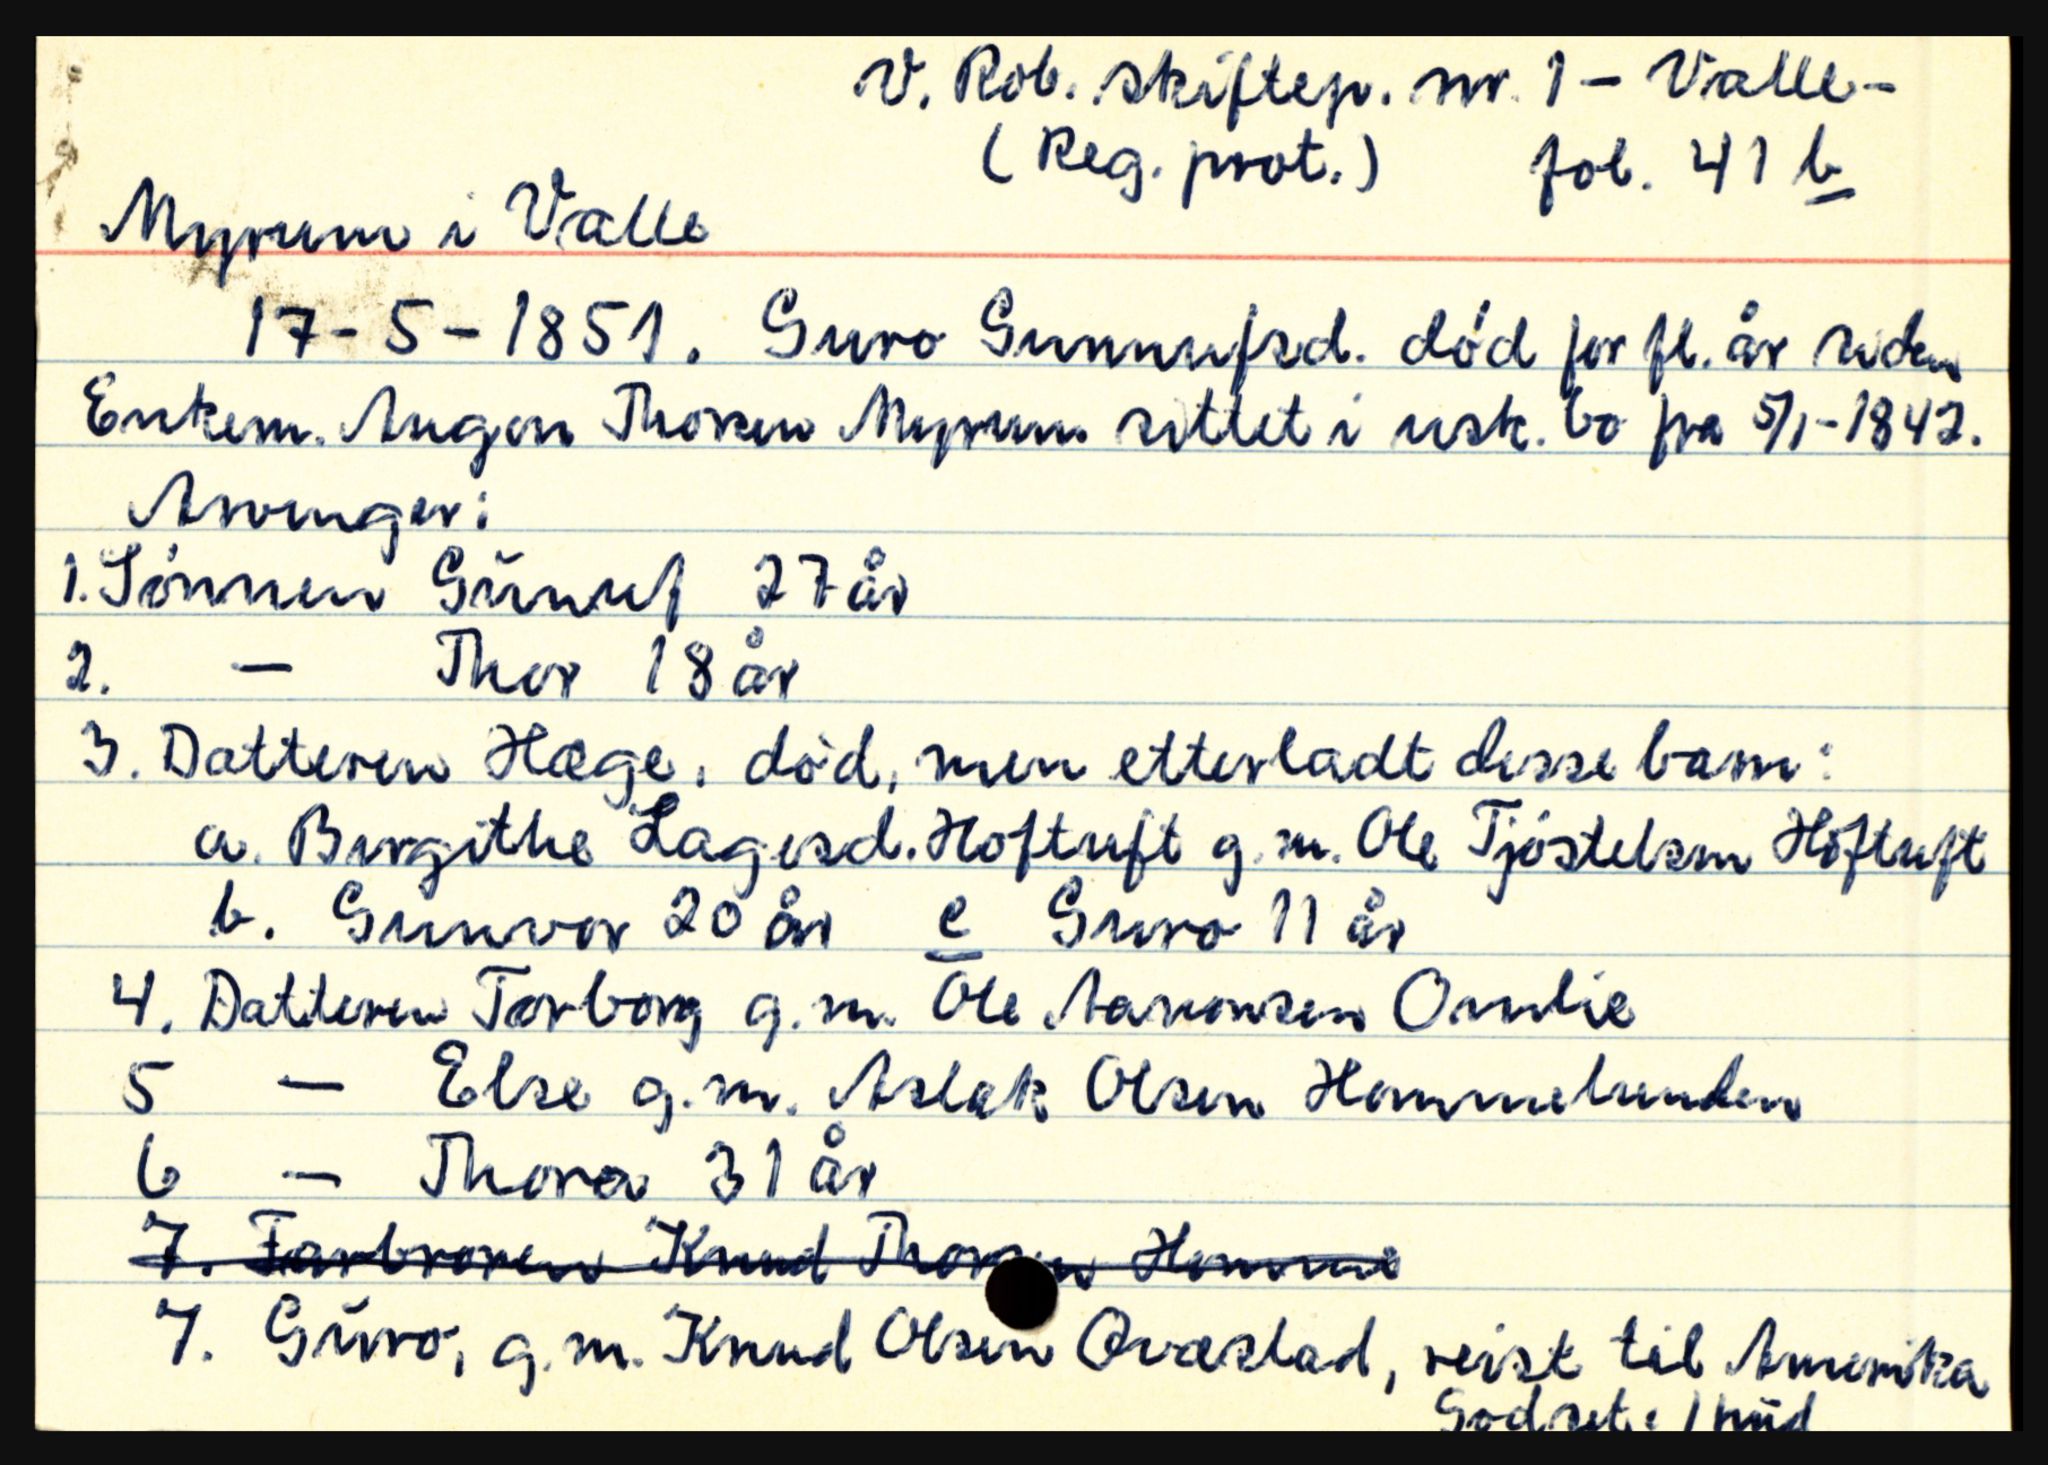 V. Rob. skiftep. nr. 1 - Valle -
(Reg. prot.) fol. 41 b
Myrum i Valle
17-5-1851. Guro Gunnufsd. død for fl. år siden
Enkem. Augon Thorsen Myrum sittet i usk. bo fra 5/1-1842.
Arvinger:
1. Sønnen Gŭnuf 27 år
2. — Thor 18 år
3. Datteren Hæge, død, men etterladt disse barn:
a. Birgithe Lagesd. Hoftuft g. m. Ole Tjøstelsen Høftuft
b. Gunvor 20 år c Guro 11 år
4. Datteren Torborg g. m. Ole Aaronsen Omlie
5 — Else g. m. Aslak Olsen Hommelunden
6 — Thora 31 år
7. Farbroren Knud Thorsen Homme
7. Gŭro, g. m. Knud Olsen Qvæstad, reist til Amerika